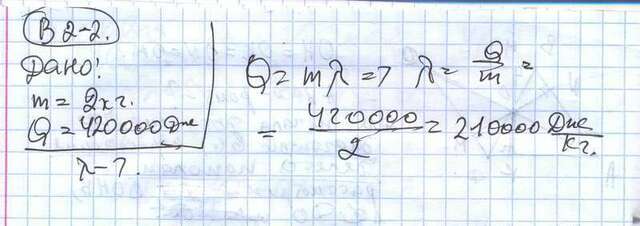 В 2-2.
Дано:
m = 2кг.
Q = 420000 Дж
λ - ?
Q = mλ => λ = Q/m =
= 420000/2 = 210000 Дж/кг.